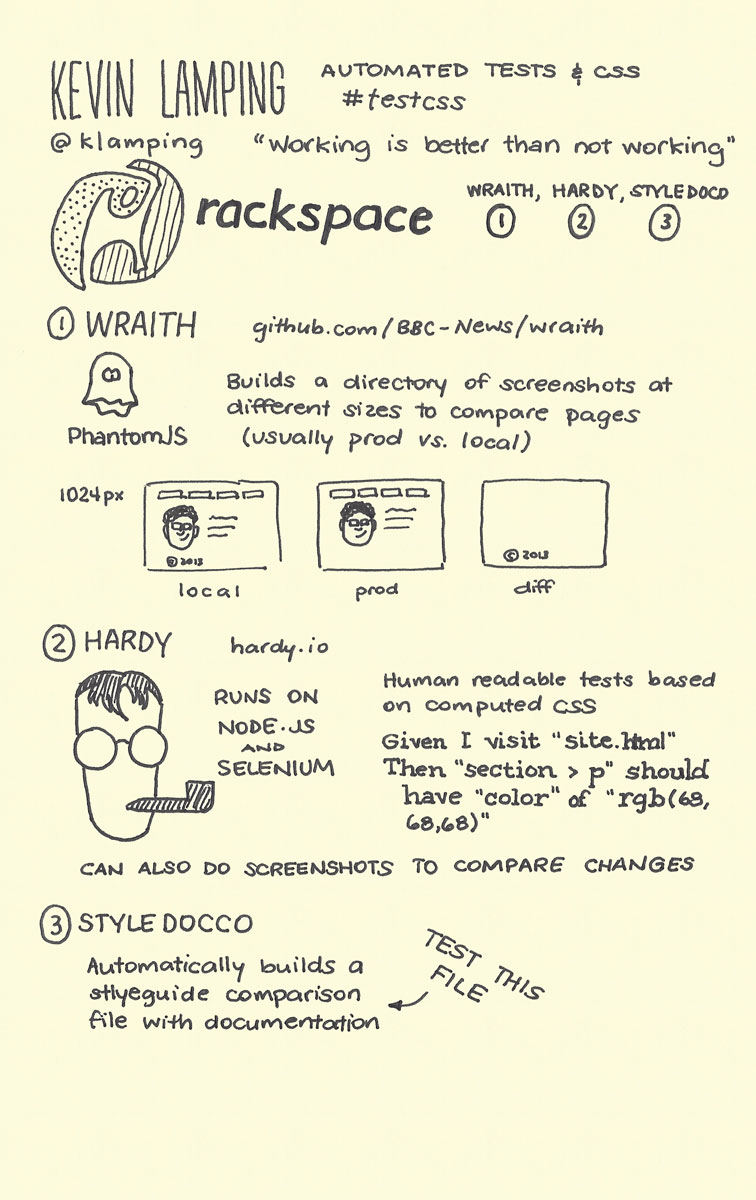 KEVIN LAMPING
AUTOMATED TESTS & CSS
#testcss
@klamping
"Working is better than not working"
rackspace
WRAITH, HARDY, STYLEDOCO
1 2 3
1 WRAITH
github.com/BBC-News/wraith
PhantomJS
Builds a directory of screenshots at
different sizes to compare pages
(usually prod vs. local)
1024px
© 2013
local
prod
© 2013
diff
2 HARDY
hardy.io
RUNS ON
NODE.JS
AND
SELENIUM
Human readable tests based
on computed CSS
Given I visit "site.html"
Then "section > p" should
have "color" of "rgb(68,
68,68)"
CAN ALSO DO SCREENSHOTS TO COMPARE CHANGES
3 STYLEDOCCO
Automatically builds a
stlyeguide comparison
file with documentation
TEST THIS
FILE